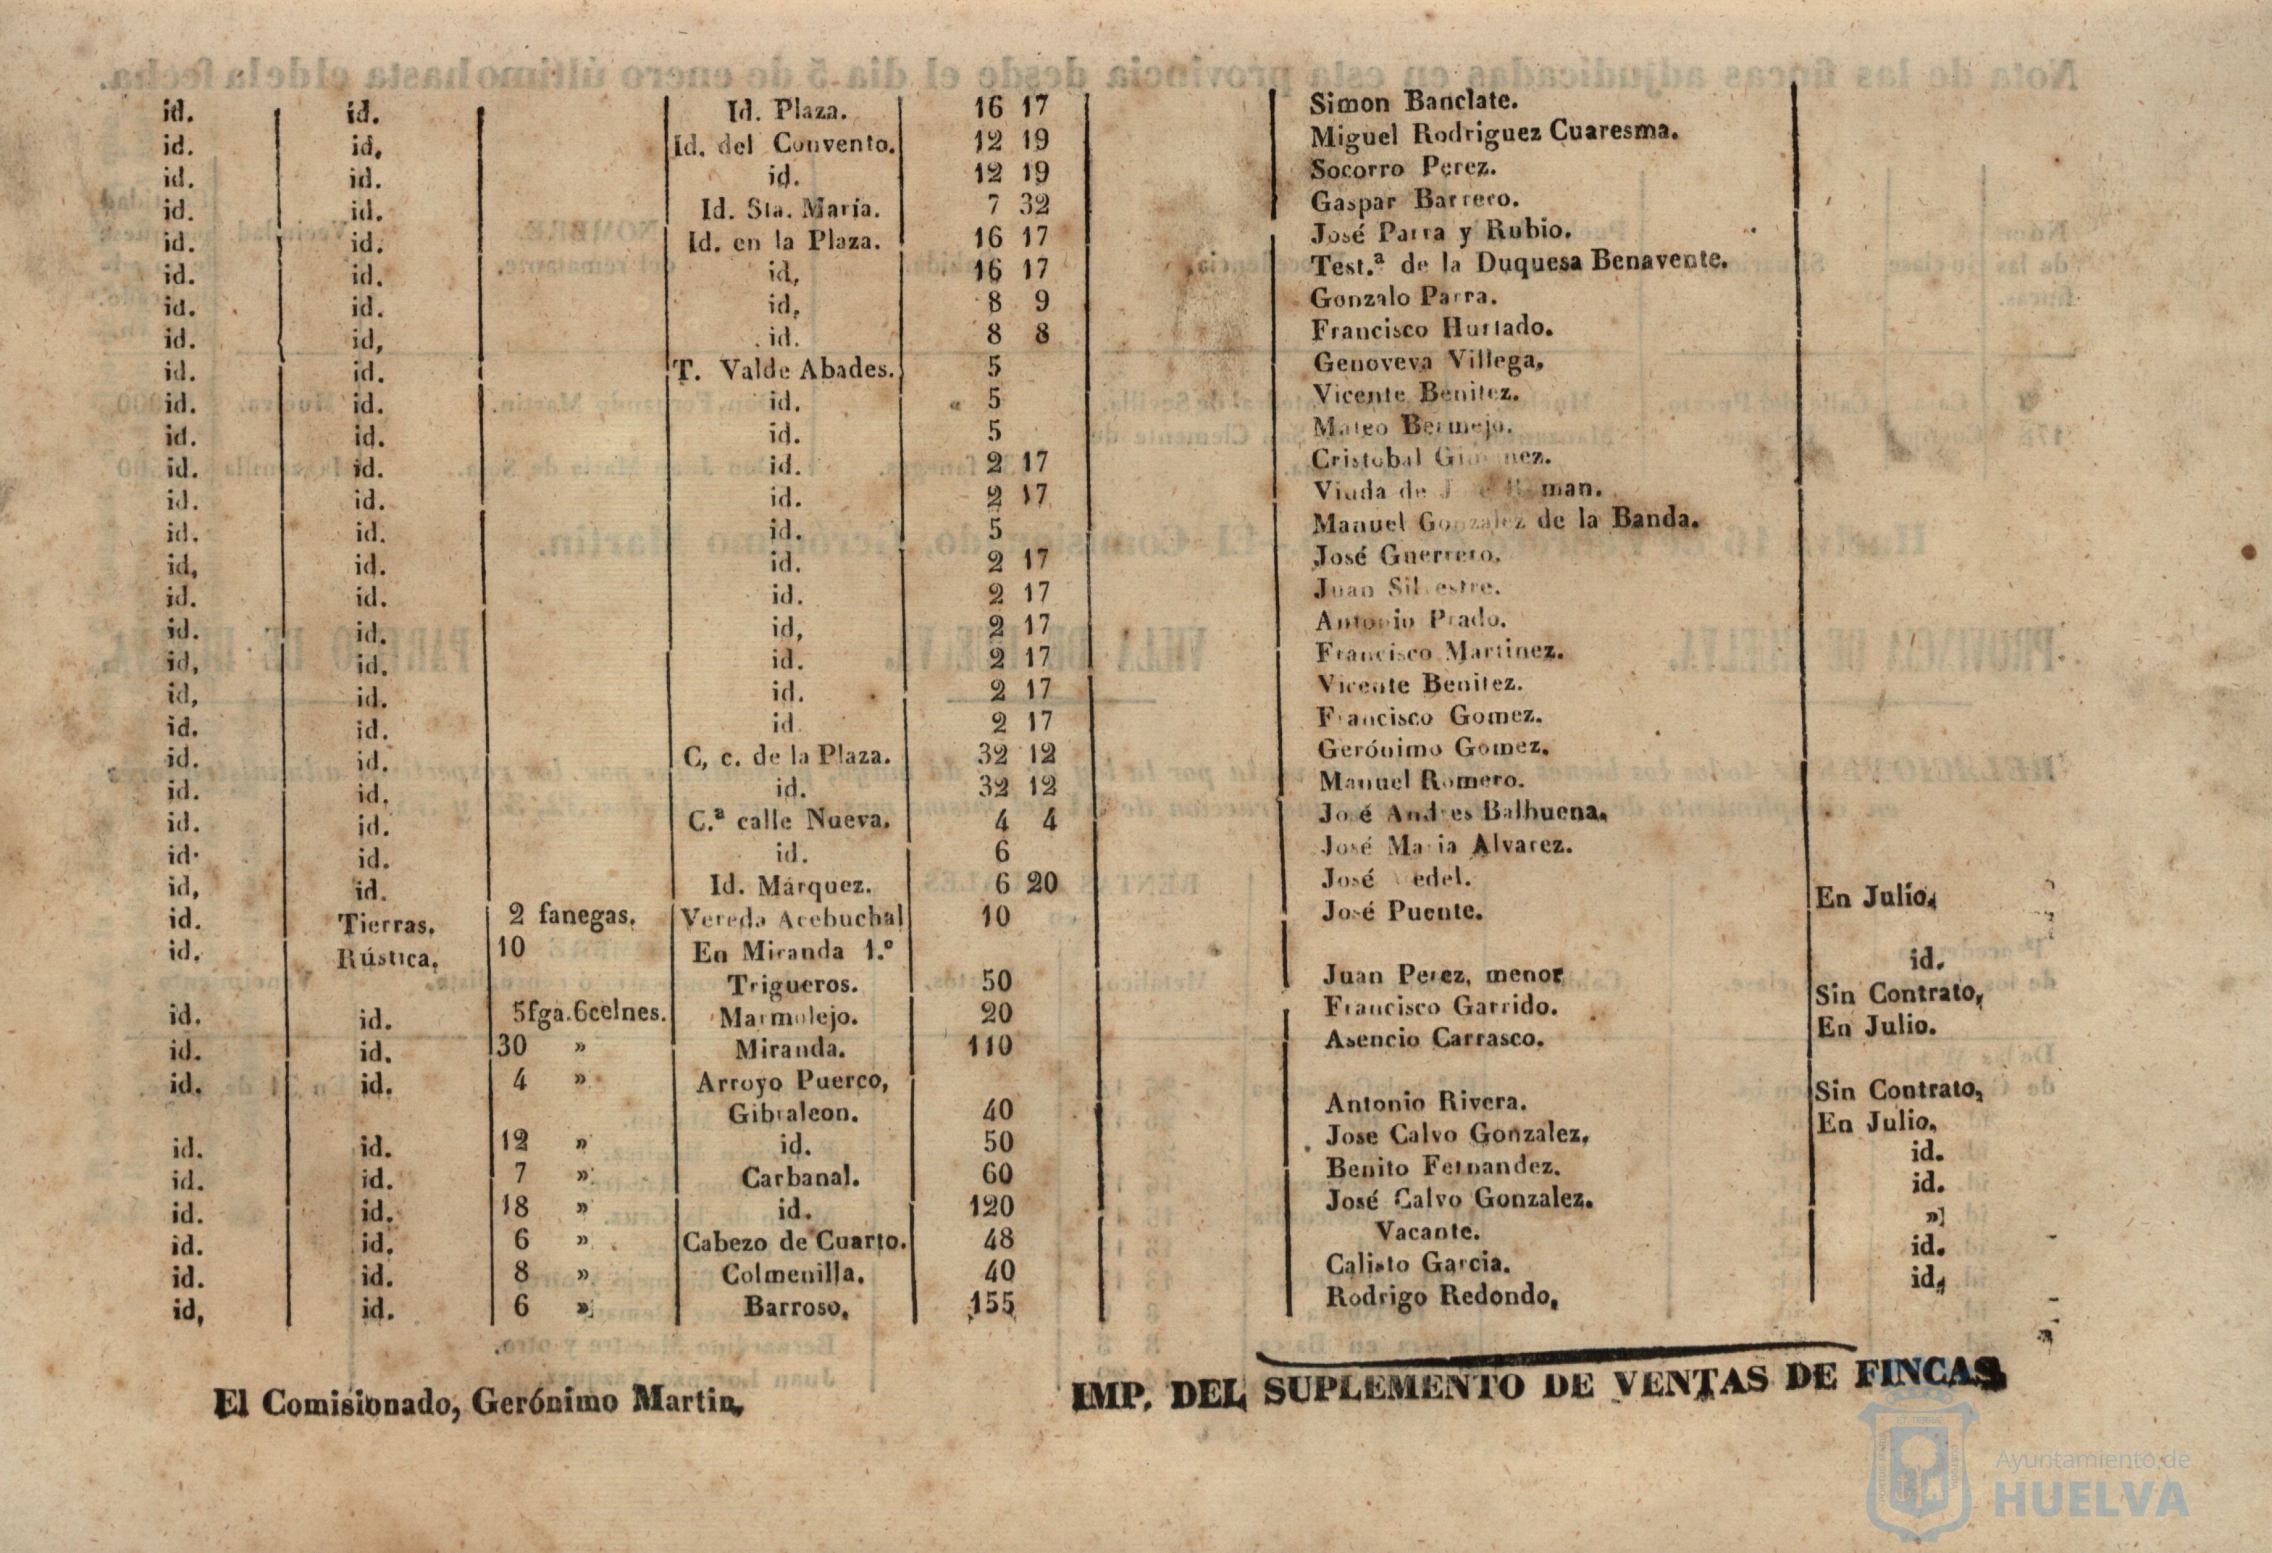 id. id. Id. Plaza. 16 17 Simon Banclate.
id. id, Id. del Convento. 12 19 Miguel Rodriguez Cuaresma.
id. id. id. 12 19 Socorro Perez.
id. id. Id. Sta. María. 7 32 Gaspar Barrero.
id. id. Id. en la Plaza. 16 17 José Parra y Rubio.
id. id. id, 16 17 Test.ª de la Duquesa Benavente.
id. id. id, 8 9 Gonzalo Parra.
id. id, id. 8 8 Francisco Hurtado.
id. id. T. Valde Abades. 5 Genoveva Villega,
id. id. id. 5 Vicente Benitez.
id. id. id. 5 Mateo Bermejo.
id. id. id. 2 17 Cristobal
id. id. id. 2 17 Viuda de
id. id. id. 5 Manuel Gonzalez de la Banda.
id, id. id. 2 17 José Guerrero.
id. id. id. 2 17 Juan Silvestre.
id. id. id, 2 17 Antonio Prado.
id, id. id. 2 17 Francisco Martinez.
id, id. id. 2 17 Vicente Benitez.
id. id. id. 2 17 Francisco Gomez.
id. id. C, c. de la Plaza. 32 12 Gerónimo Gomez.
id. id. id. 32 12 Manuel Romero.
id. id. C.ª calle Nueva. 4 4 José Andres Balbuena.
id. id. id. 6 José Maria Alvarez.
id, id. Id. Márquez. 6 20 José
id. Tierras. 2 fanegas. Vereda Acebuchal 10 José Puente. En Julio,
id. Rústica. 10 En Miranda 1.º
Trigueros. 50 Juan Perez, menor id.
id. id. 5fga.6celnes. Marmolejo. 20 Francisco Garrido. Sin Contrato,
id. id. 30 » Miranda. 110 Asencio Carrasco. En Julio.
id. id. 4 » Arroyo Puerco,
Gibraleon. 40 Antonio Rivera. Sin Contrato,
id. id. 12 » id. 50 Jose Calvo Gonzalez, En Julio,
id. id. 7 » Carbanal. 60 Benito Fernandez. id.
id. id. 18 » id. 120 José Calvo Gonzalez. id.
id. id. 6 » Cabezo de Cuarto. 48 Vacante. »
id. id. 8 » Colmenilla. 40 Calisto Garcia. id.
id, id. 6 » Barroso, 155 Rodrigo Redondo, id,
El Comisionado, Gerónimo Martin, IMP. DEL SUPLEMENTO DE VENTAS DE FINCAS
Ayuntamiento de
HUELVA